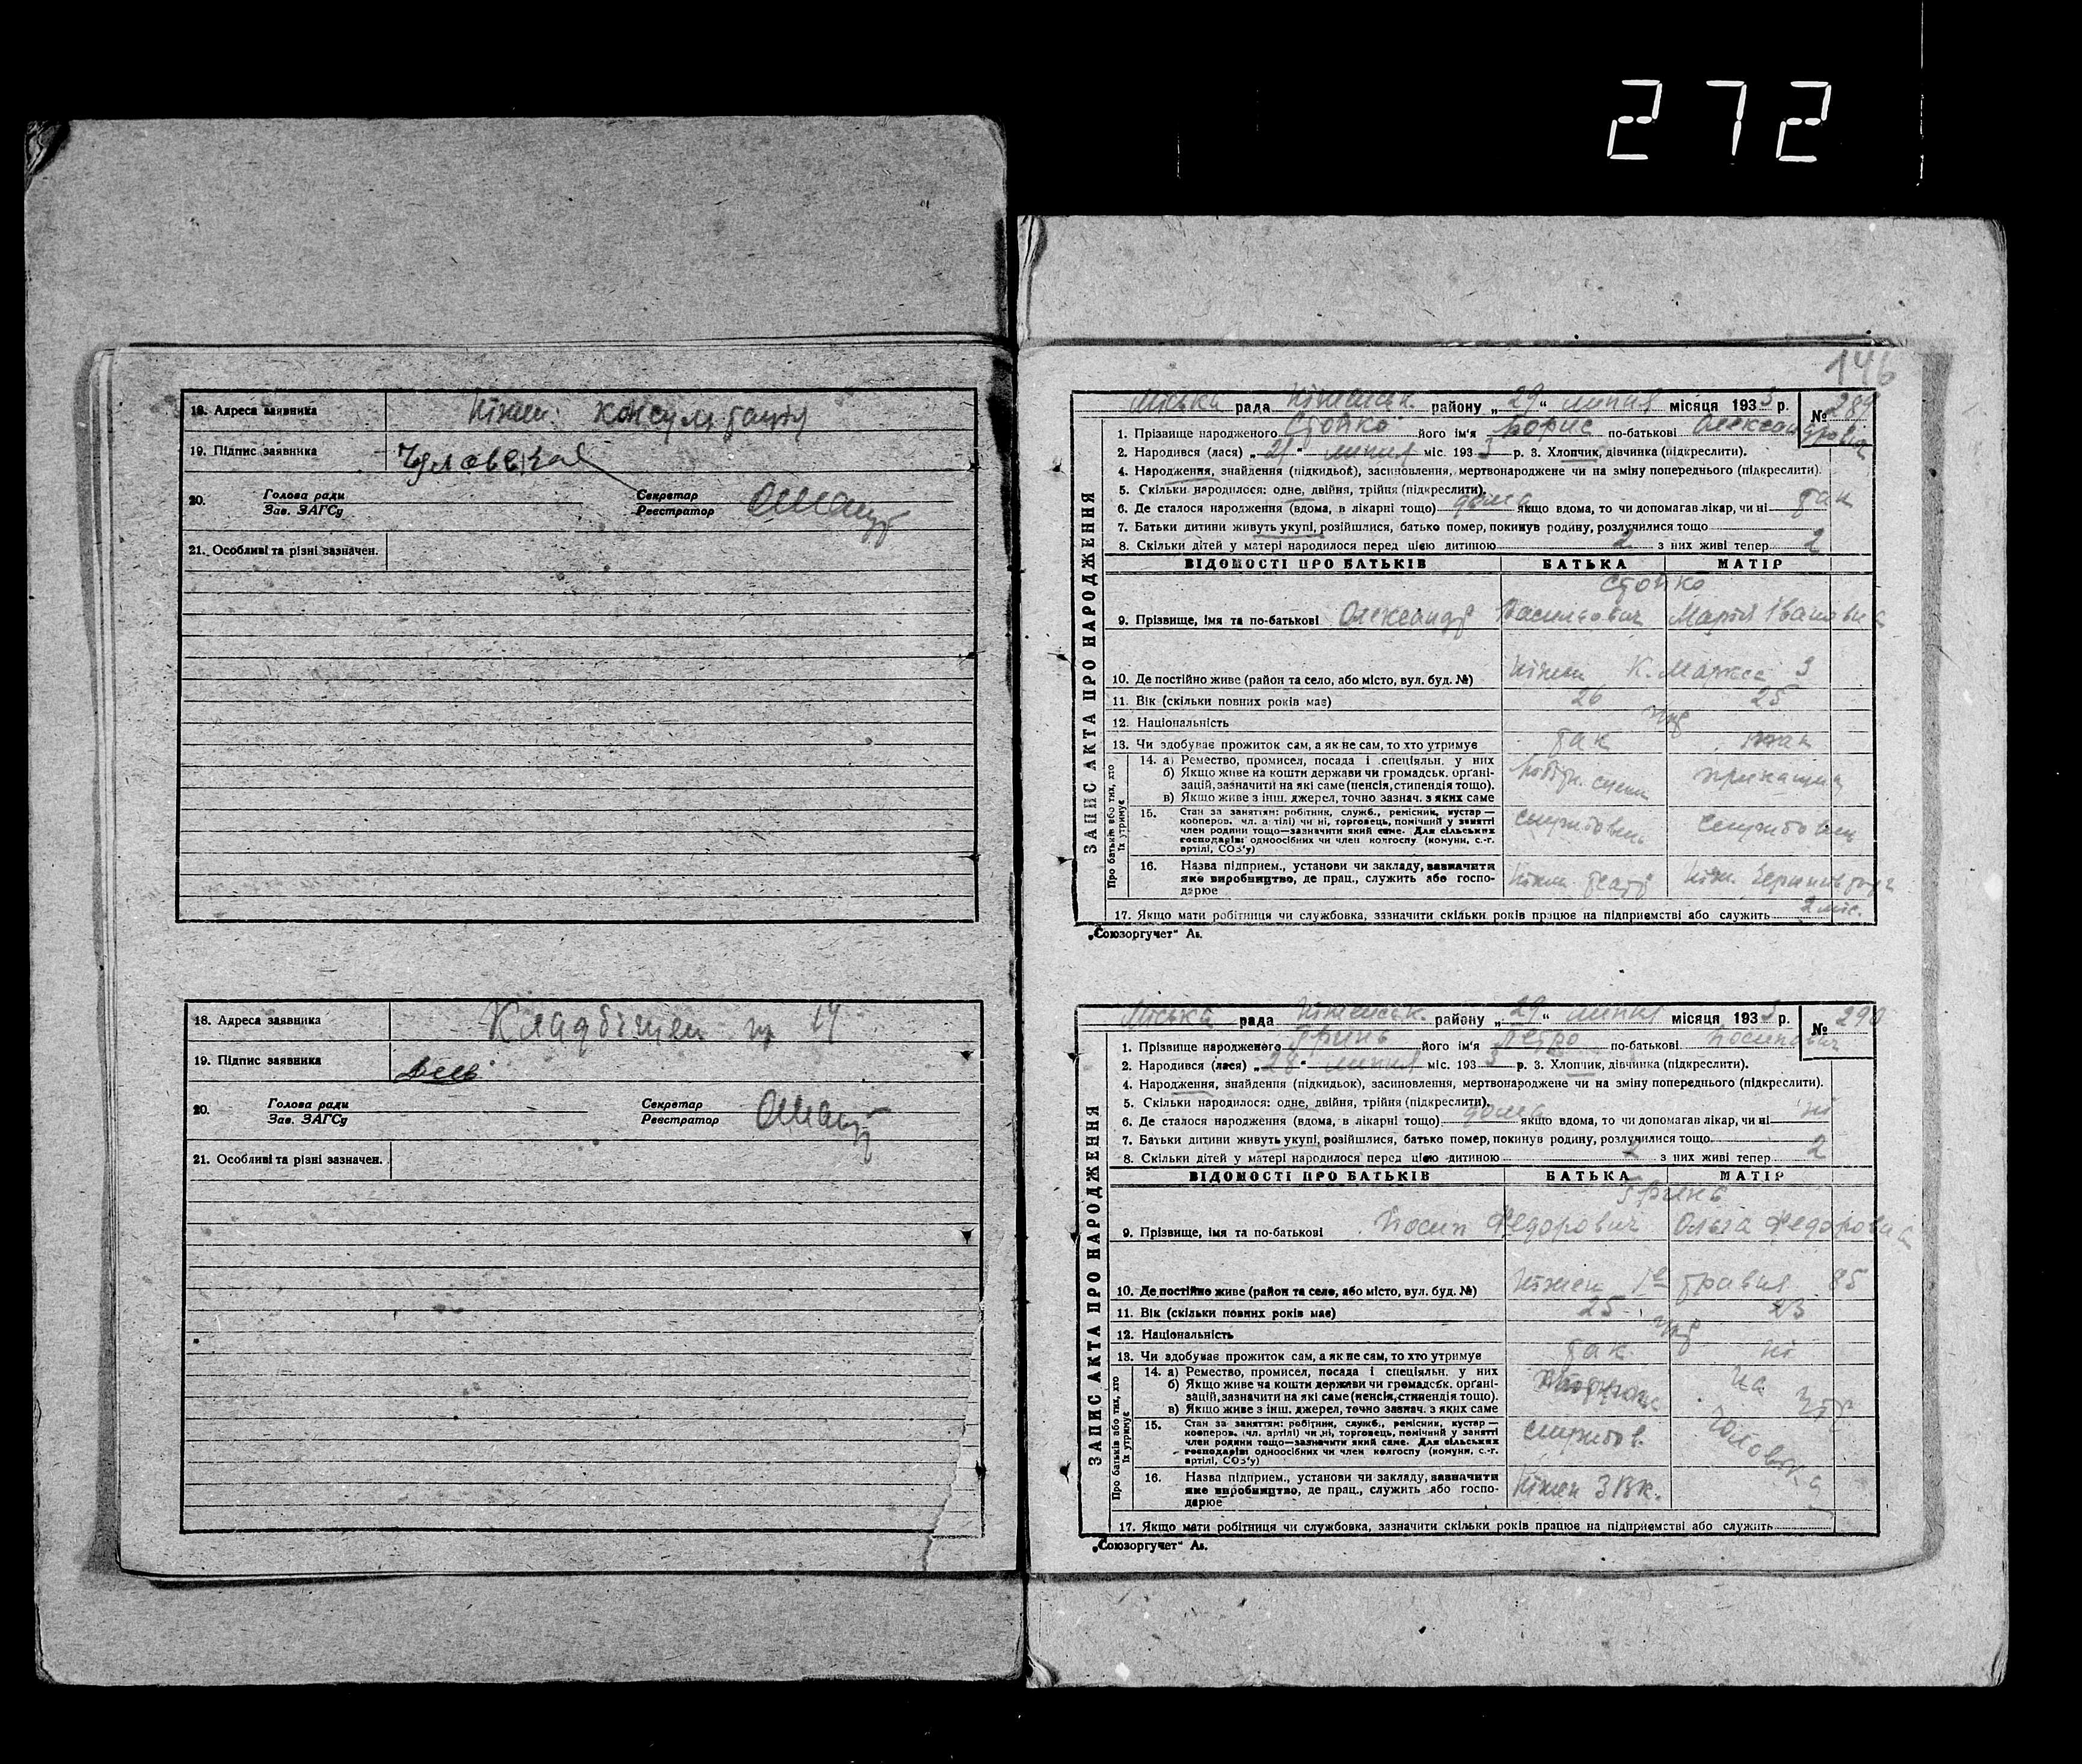 272
18. Адреса заявника Ніжен. консультація
19. Підпис заявника
20. Голова ради
Зав. ЗАГСу
Секретар
Реєстратор
21. Особливі та різні зазначен.
18. Адреса заявника 14
19. Підпис заявника
20. Голова ради
Зав. ЗАГСу
Секретар
Реєстратор
21. Особливі та різні зазначен.
146
Міська рада Ніженськ. району „29“ липня місяця 1933 р.
№ 289
ЗАПИС АКТА ПРО НАРОДЖЕННЯ
1. Прізвище народженого Стойко його ім'я Борис по-батькові Олександрович
2. Народився (лася) „21“ липня міс. 1933 р. 3. Хлопчик, дівчинка (підкреслити).
4. Народження, знайдення (підкидьок), засиновлення, мертвонароджене чи на зміну попереднього (підкреслити).
5. Скільки народилося: одне, двійня, трійня (підкреслити).
6. Де сталося народження (вдома, в лікарні тощо) дома якщо вдома, то чи допомагав лікар, чи ні так
7. Батьки дитини живуть укупі, розійшлися, батько помер, покинув родину, розлучилися тощо
8. Скільки дітей у матері народилося перед цією дитиною 2 з них живі тепер 2
ВІДОМОСТІ ПРО БАТЬКІВ БАТЬКА МАТІР
Стойко
9. Прізвище, імя та по-батькові Олександр Васильович Марія Івановна
10. Де постійно живе (район та село, або місто, вул. буд. №) Ніжен К. Маркса 9
11. Вік (скільки повних років має) 26 25
12. Національність укр
13. Чи здобуває прожиток сам, а як не сам, то хто утримує так так
Про батьків або тих, хто їх утримує
14. а) Ремество, промисел, посада і спеціяльн. у них
б) Якщо живе на кошти держави чи громадськ. органі-
зацій, зазначити на які саме (пенсія, стипендія тощо).
в) Якщо живе з інш. джерел, точно зазнач. з яких саме
15. Стан за заняттям: робітник, служб., ремісник, кустар—
кооперов. чл. артілі) чи ні, торговець, помічний у занятті
член родини тощо—зазначити який саме. Для сільських
господарів: одноосібних чи член колгоспу (комуни, с.-г.
артілі, СОЗ'у)
службовець службовець
16. Назва підприєм., установи чи закладу, зазначити
яке виробництво, де прац., служить або госпо-
дарює
Ніжен театр
17. Якщо мати робітниця чи службовка, зазначити скільки років працює на підприємстві або служить 2 міс.
„Союзоргучет“ Ав.
Міська рада Ніженськ. району „29“ липня місяця 1933 р.
№ 290
ЗАПИС АКТА ПРО НАРОДЖЕННЯ
1. Прізвище народженого Гринь його ім'я Петро по-батькові Йосипович
2. Народився (лася) „28“ липня міс. 1933 р. 3. Хлопчик, дівчинка (підкреслити).
4. Народження, знайдення (підкидьок), засиновлення, мертвонароджене чи на зміну попереднього (підкреслити).
5. Скільки народилося: одне, двійня, трійня (підкреслити).
6. Де сталося народження (вдома, в лікарні тощо) дома якщо вдома, то чи допомагав лікар, чи ні ні
7. Батьки дитини живуть укупі, розійшлися, батько помер, покинув родину, розлучилися тощо
8. Скільки дітей у матері народилося перед цією дитиною 2 з них живі тепер 2
ВІДОМОСТІ ПРО БАТЬКІВ БАТЬКА МАТІР
Гринь
9. Прізвище, імя та по-батькові Йосип Федорович Ольга Федоровна
10. Де постійно живе (район та село, або місто, вул. буд. №) Ніжен 1е травня 85
11. Вік (скільки повних років має) 25 23
12. Національність укр
13. Чи здобуває прожиток сам, а як не сам, то хто утримує так ні
Про батьків або тих, хто їх утримує
14. а) Ремество, промисел, посада і спеціяльн. у них
б) Якщо живе на кошти держави чи громадськ. органі-
зацій, зазначити на які саме (пенсія, стипендія тощо).
в) Якщо живе з інш. джерел, точно зазнач. з яких саме
на утр чоловіка
15. Стан за заняттям: робітник, служб., ремісник, кустар—
кооперов. (чл. артілі) чи ні, торговець, помічний у занятті
член родини тощо—зазначити який саме. Для сільських
господарів одноосібних чи член колгоспу (комуни, с.-г.
артілі, СОЗ'у)
службов.
16. Назва підприєм., установи чи закладу, зазначити
яке виробництво, де прац., служить або госпо-
дарює
Ніжен ЗВК.
17. Якщо мати робітниця чи службовка, зазначити скільки років працює на підприємстві або служить
„Союзоргучет“ Ав.